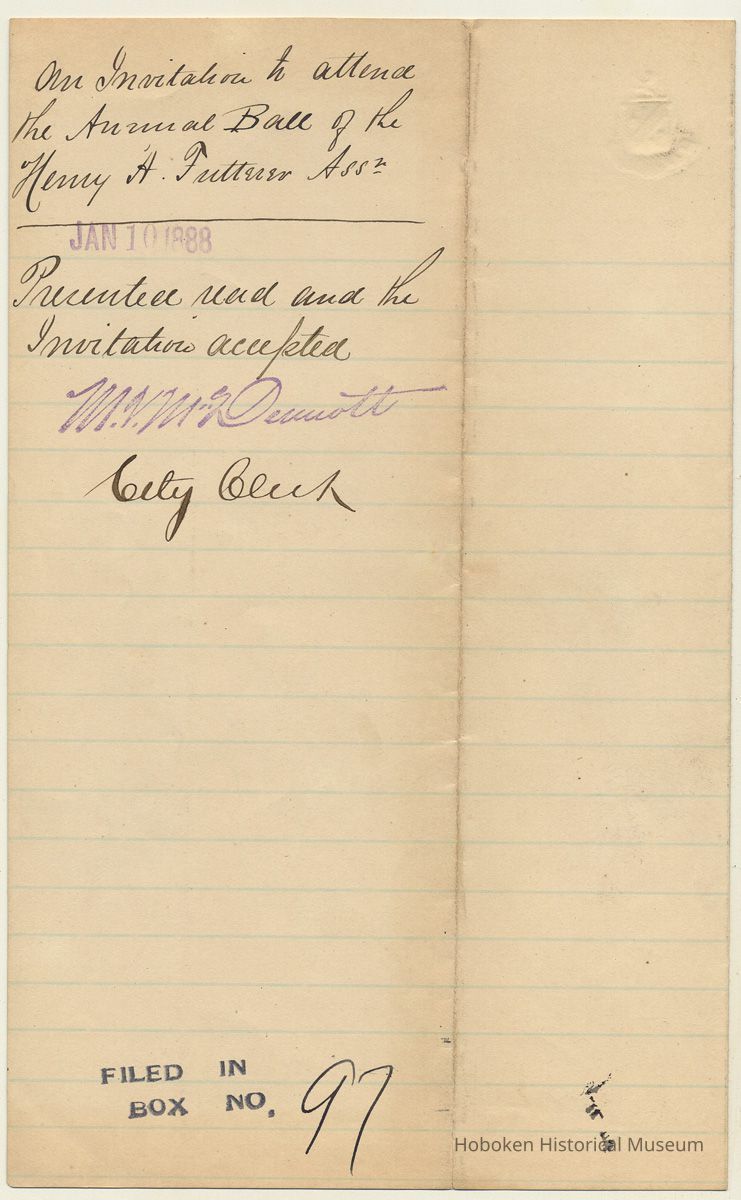 An Invitation to attend
the Annual Ball of the
Henry A. Futterer Assn
JAN 10 1888
Presented read and the
Invitation accepted
M.V. McDermott
City Clerk
FILED IN
BOX NO. 97
Hoboken Historical Museum